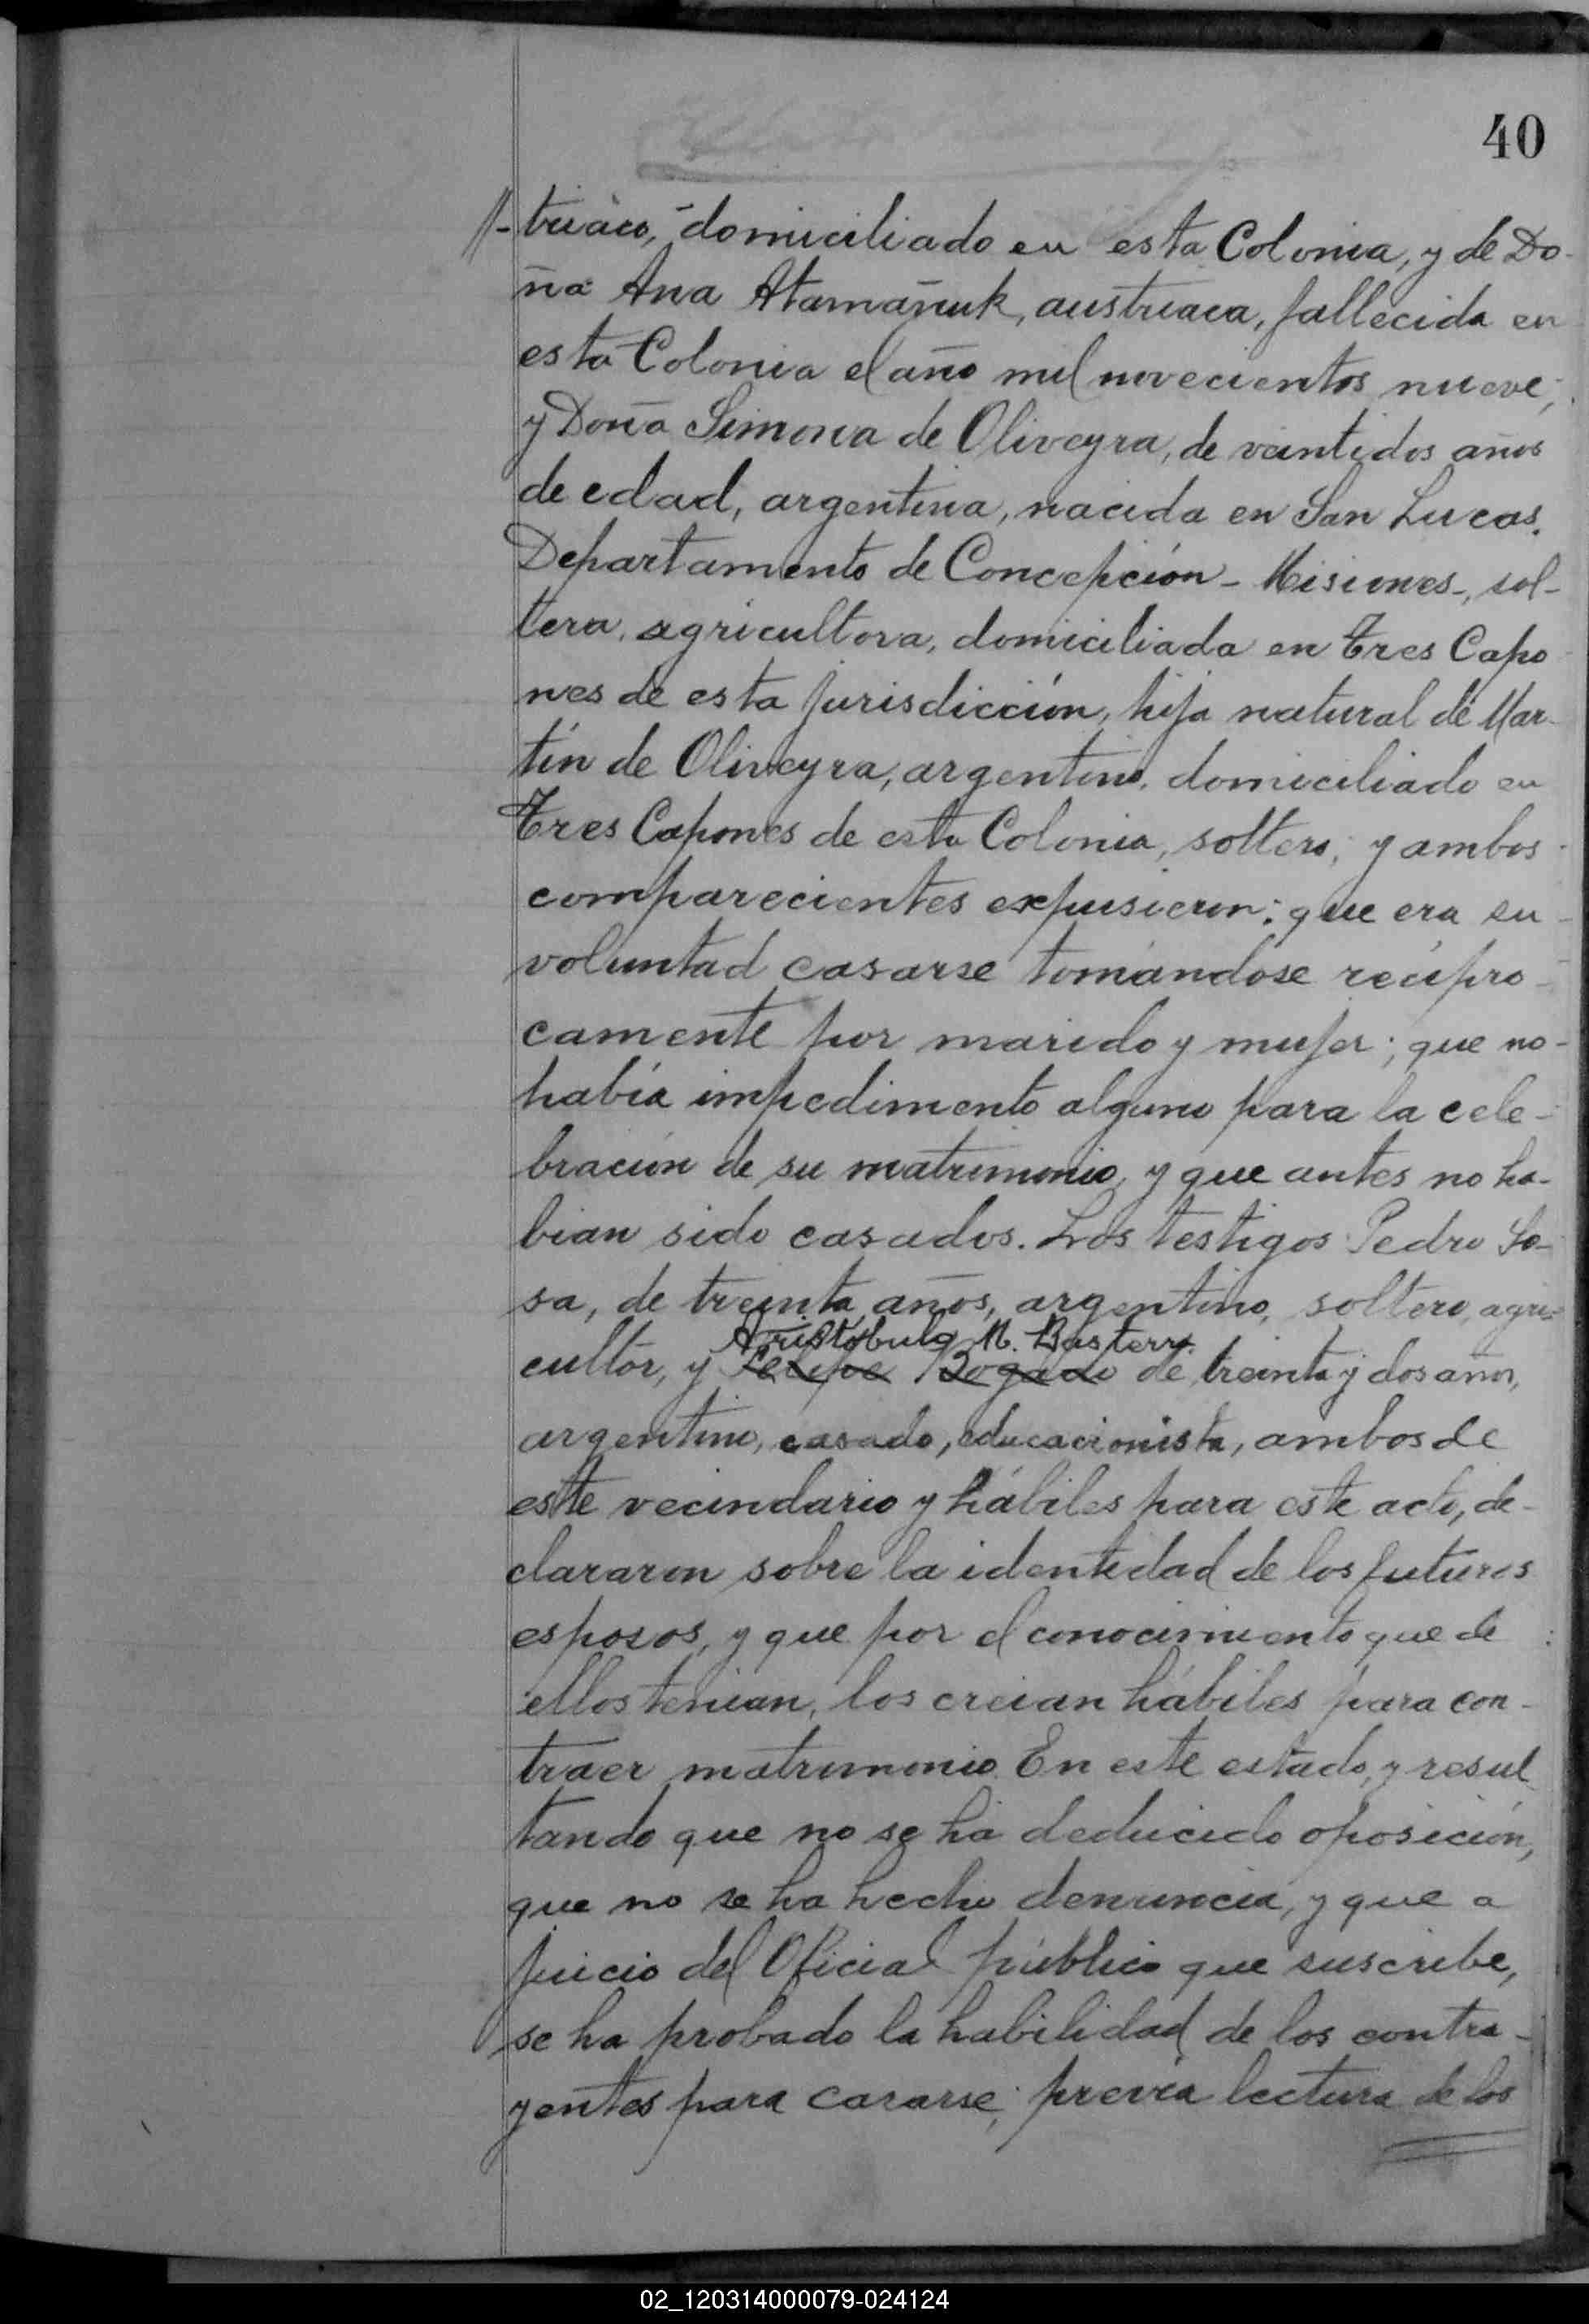 40
//-triaco, domiciliado en esta Colonia, y de Do-
ña Ana Atamañuk, austriaca, fallecida en
esta Colonia el año mil novecientos nueve;
y Doña Simona de Oliveyra, de veintidos años
de edad, argentina, nacida en San Lucas,
Departamento de Concepción - Misiones-, sol-
tera, agricultora, domiciliada en Tres Capo-
nes de esta jurisdicción, hija natural de Mar-
tín de Oliveyra, argentino, domiciliado en
Tres Capones de esta Colonia, soltero; y ambos
comparecientes expusieron: que era su
voluntad casarse tomándose recípro-
camente por marido y mujer; que no
había impedimento alguno para la cele-
bración de su matrimonio, y que antes no ha-
bian sido casados. Los testigos Pedro So-
sa, de treinta años, argentino, soltero, agri-
Aristobulo M. Basterra
cultor, y Felipe Bogado de treinta y dos años,
argentino, casado, educacionista, ambos de
este vecindario y hábiles para este acto, de-
clararon sobre la identidad de los futuros
esposos, y que por el conocimiento que de
ellos tenian, los creian hábiles para con-
traer matrimonio. En este estado, y resul-
tando que no se ha deducido oposición,
que no se ha hecho denuncia, y que a
juicio del Oficial público que suscribe,
se ha probado la habilidad de los contra-
yentes para casarse; previa lectura de los
02_120314000079-024124